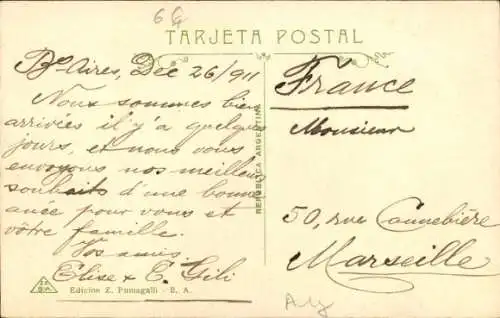 6
TARJETA POSTAL
Bs Aires, Dec 26/911
Nous sommes bien
arrivées il y'a quelques
jours, et nous vous
envoyons nos meilleurs
souhaits d'une bonne
anée pour vous et
votre famille.
Vos amis
Elise & E. Gili
Edicion Z. Fumagalli - B. A.
REPUBLICA ARGENTINA
France
Monsieur
50, rue Cannebière
Marseille